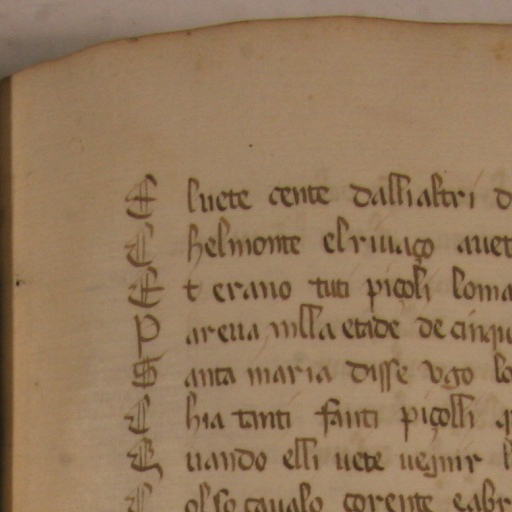 E luete cente dalli altri d
C helmonte el riuaço auet
E t erano tuti piçoli loma
P areua nilla etade de cinqu
S anta maria disse vgo lo
C hia tanti fanti piçolli q
G uando elli uete uegnir l
C ol so caualo corente eabr